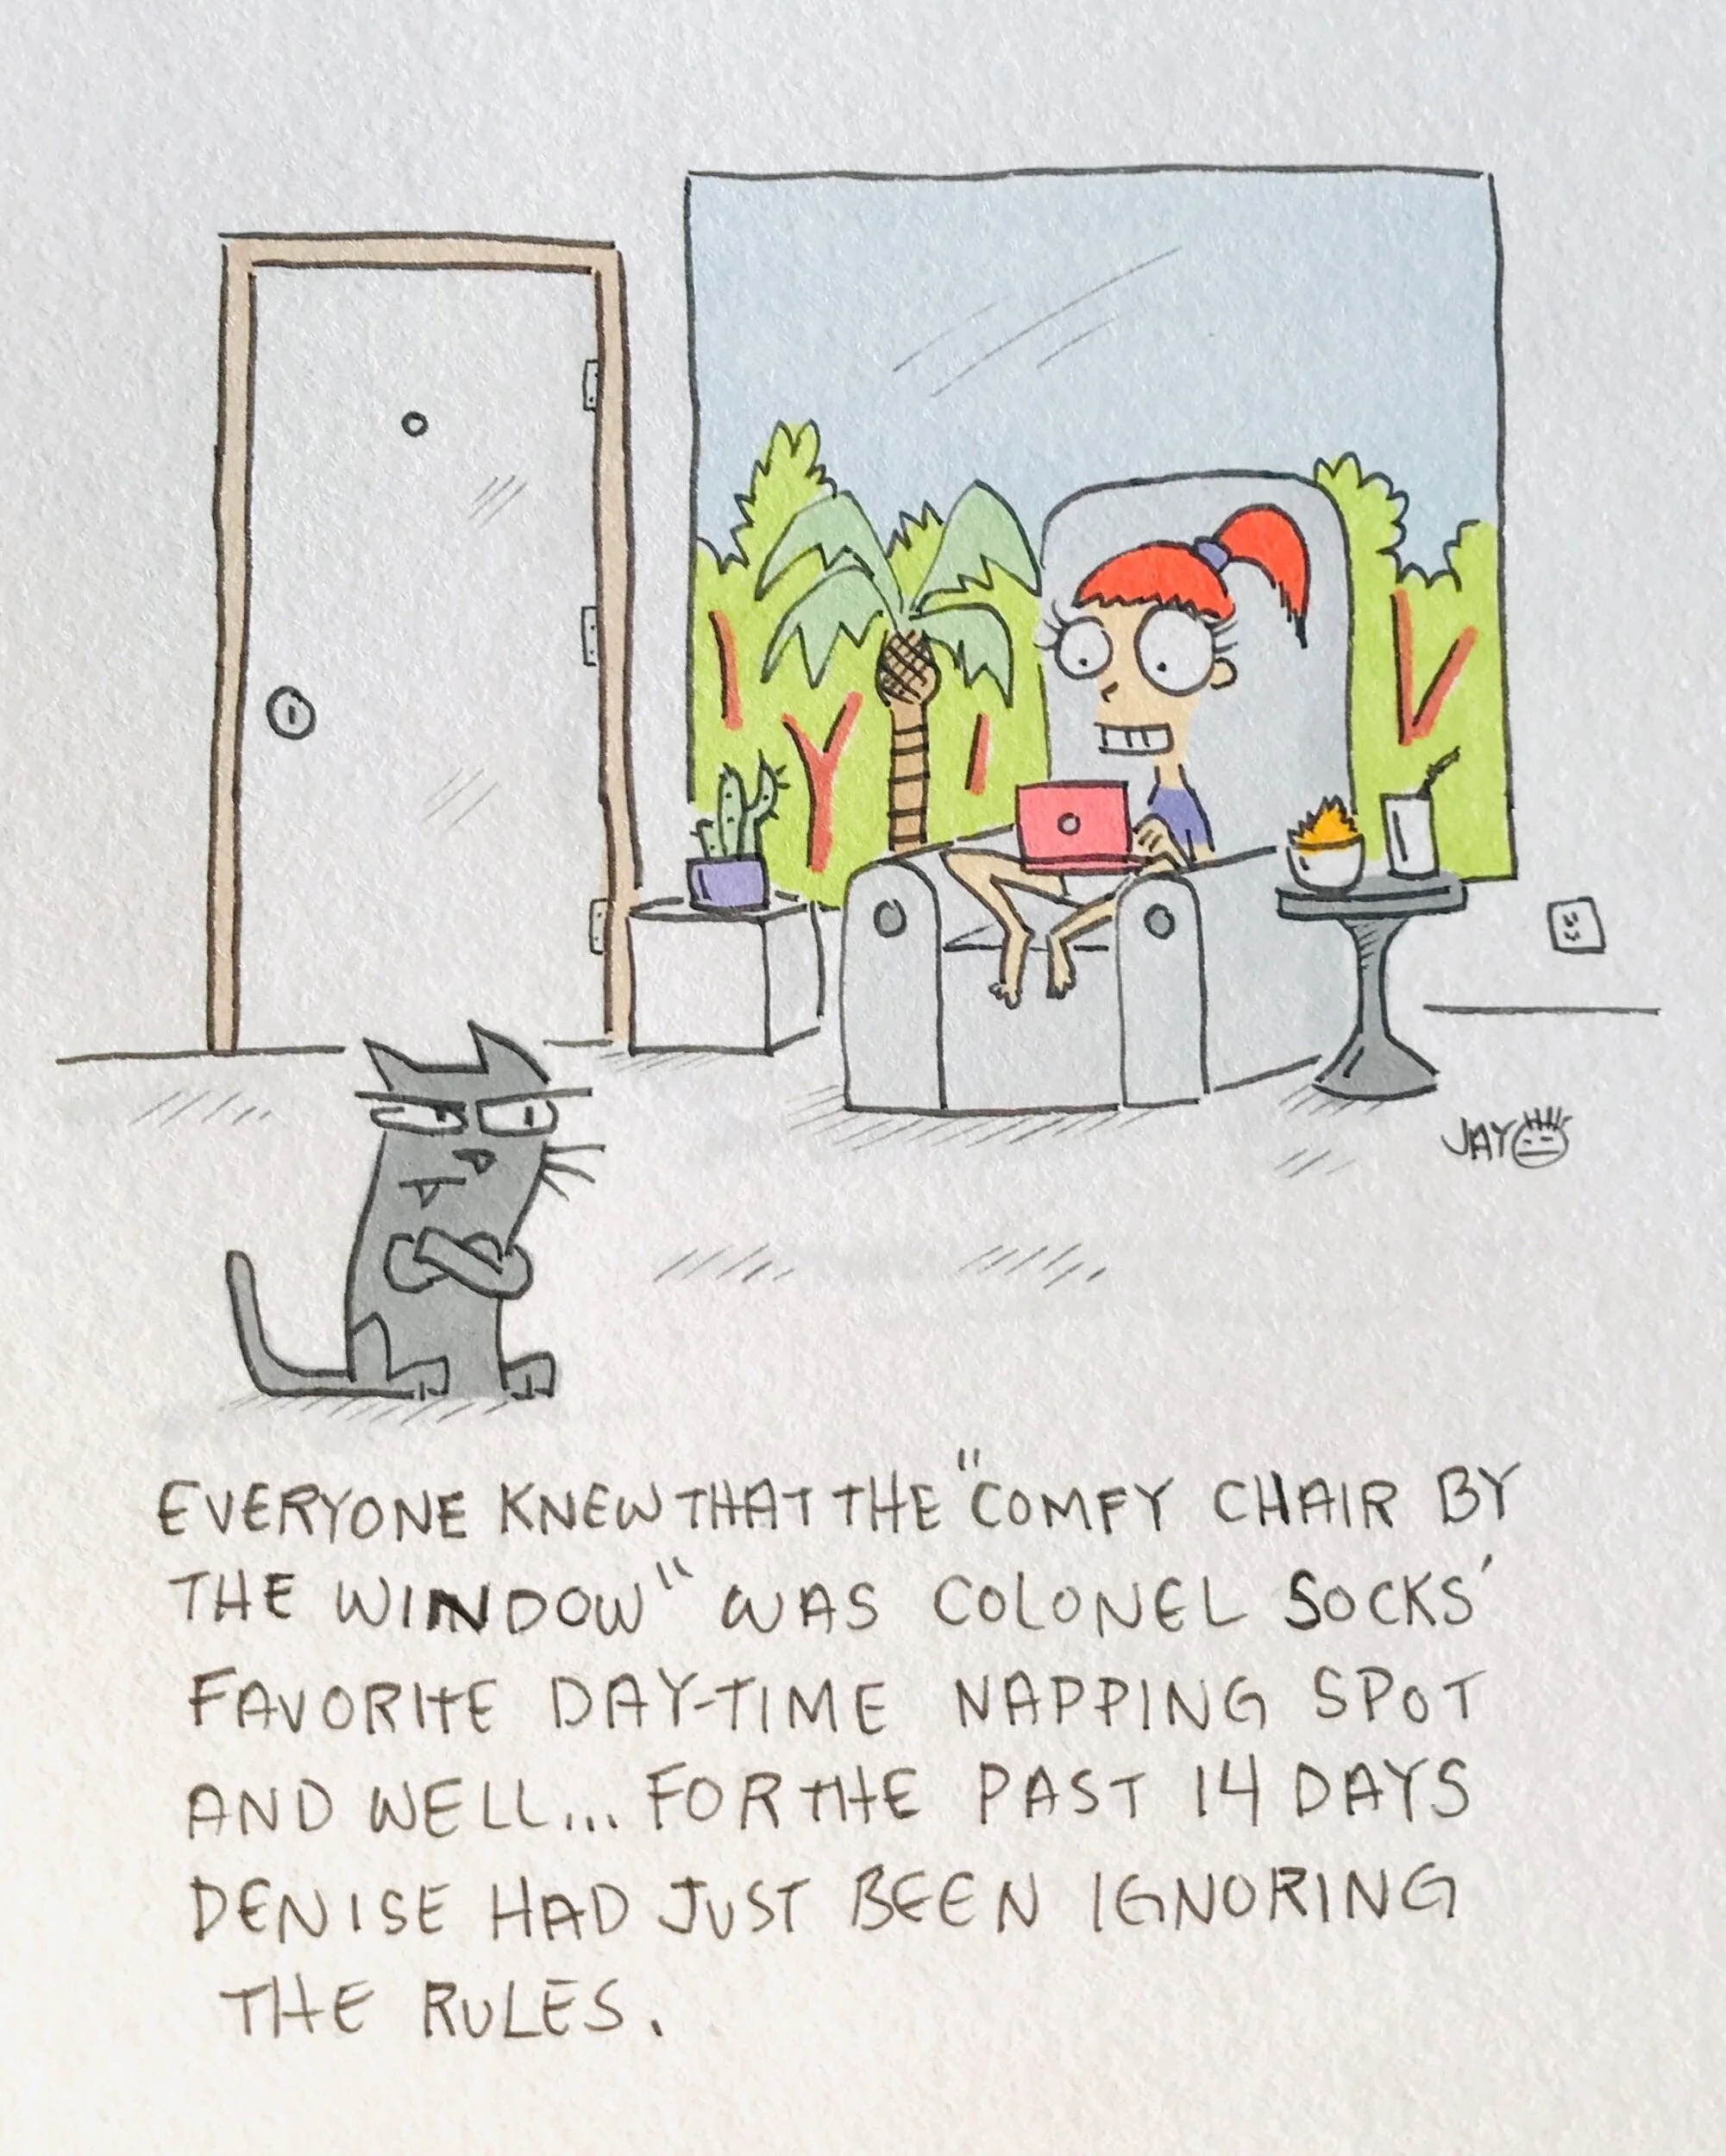 JAY
EVERYONE KNEW THAT THE "COMFY CHAIR BY
THE WINDOW" WAS COLONEL SOCKS'
FAVORITE DAY-TIME NAPPING SPOT
AND WELL... FOR THE PAST 14 DAYS
DENISE HAD JUST BEEN IGNORING
THE RULES.